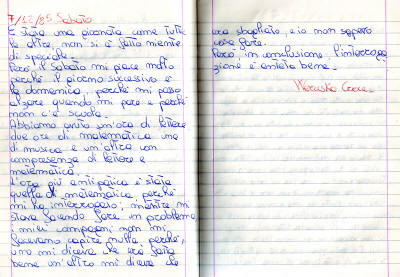 7/12/85 Sabato
È stata una giornata come tutte
le altre, non si è fatto niente
di speciale.
Però il sabato mi piace molto
perché il giorno successivo è
la domenica, perché mi posso
alzare quando mi pare e perché
non c'è scuola.
Abbiamo avuto un'ora di lettere
due ore di matematica una
di musica e un'altra con
compresenza di lettere e
matematica.
L'ora più antipatica è stata
quella di matematica, perché
mi ha interrogato; mentre mi
stava facendo fare un problema,
i miei compagni non mi
facevano capire nulla, perché,
uno mi diceva che era fatto
bene un'altro mi diceva che
era sbagliato, e io non sapevo
cosa fare.
Però, in conclusione l'interroga_
zione è andata bene.